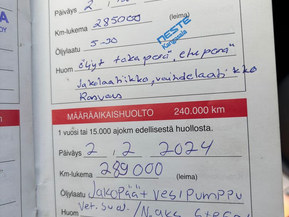 Päiväys 2, 2,
Km-lukema 285000 (leima)
NESTE
Kangasala
Öljylaatu 5-30
Huom öljyt takaperä, etuperä"
Jakolaatikko, vaihdelaatikko
Ranvaus
MÄÄRÄAIKAISHUOLTO 240.000 km
1 vuosi tai 15.000 ajokm edellisestä huollosta.
Päiväys 2, 2, 2024
Km-lukema 289000 (leima)
Öljylaatu Jakopäät vesipumppu
Huom